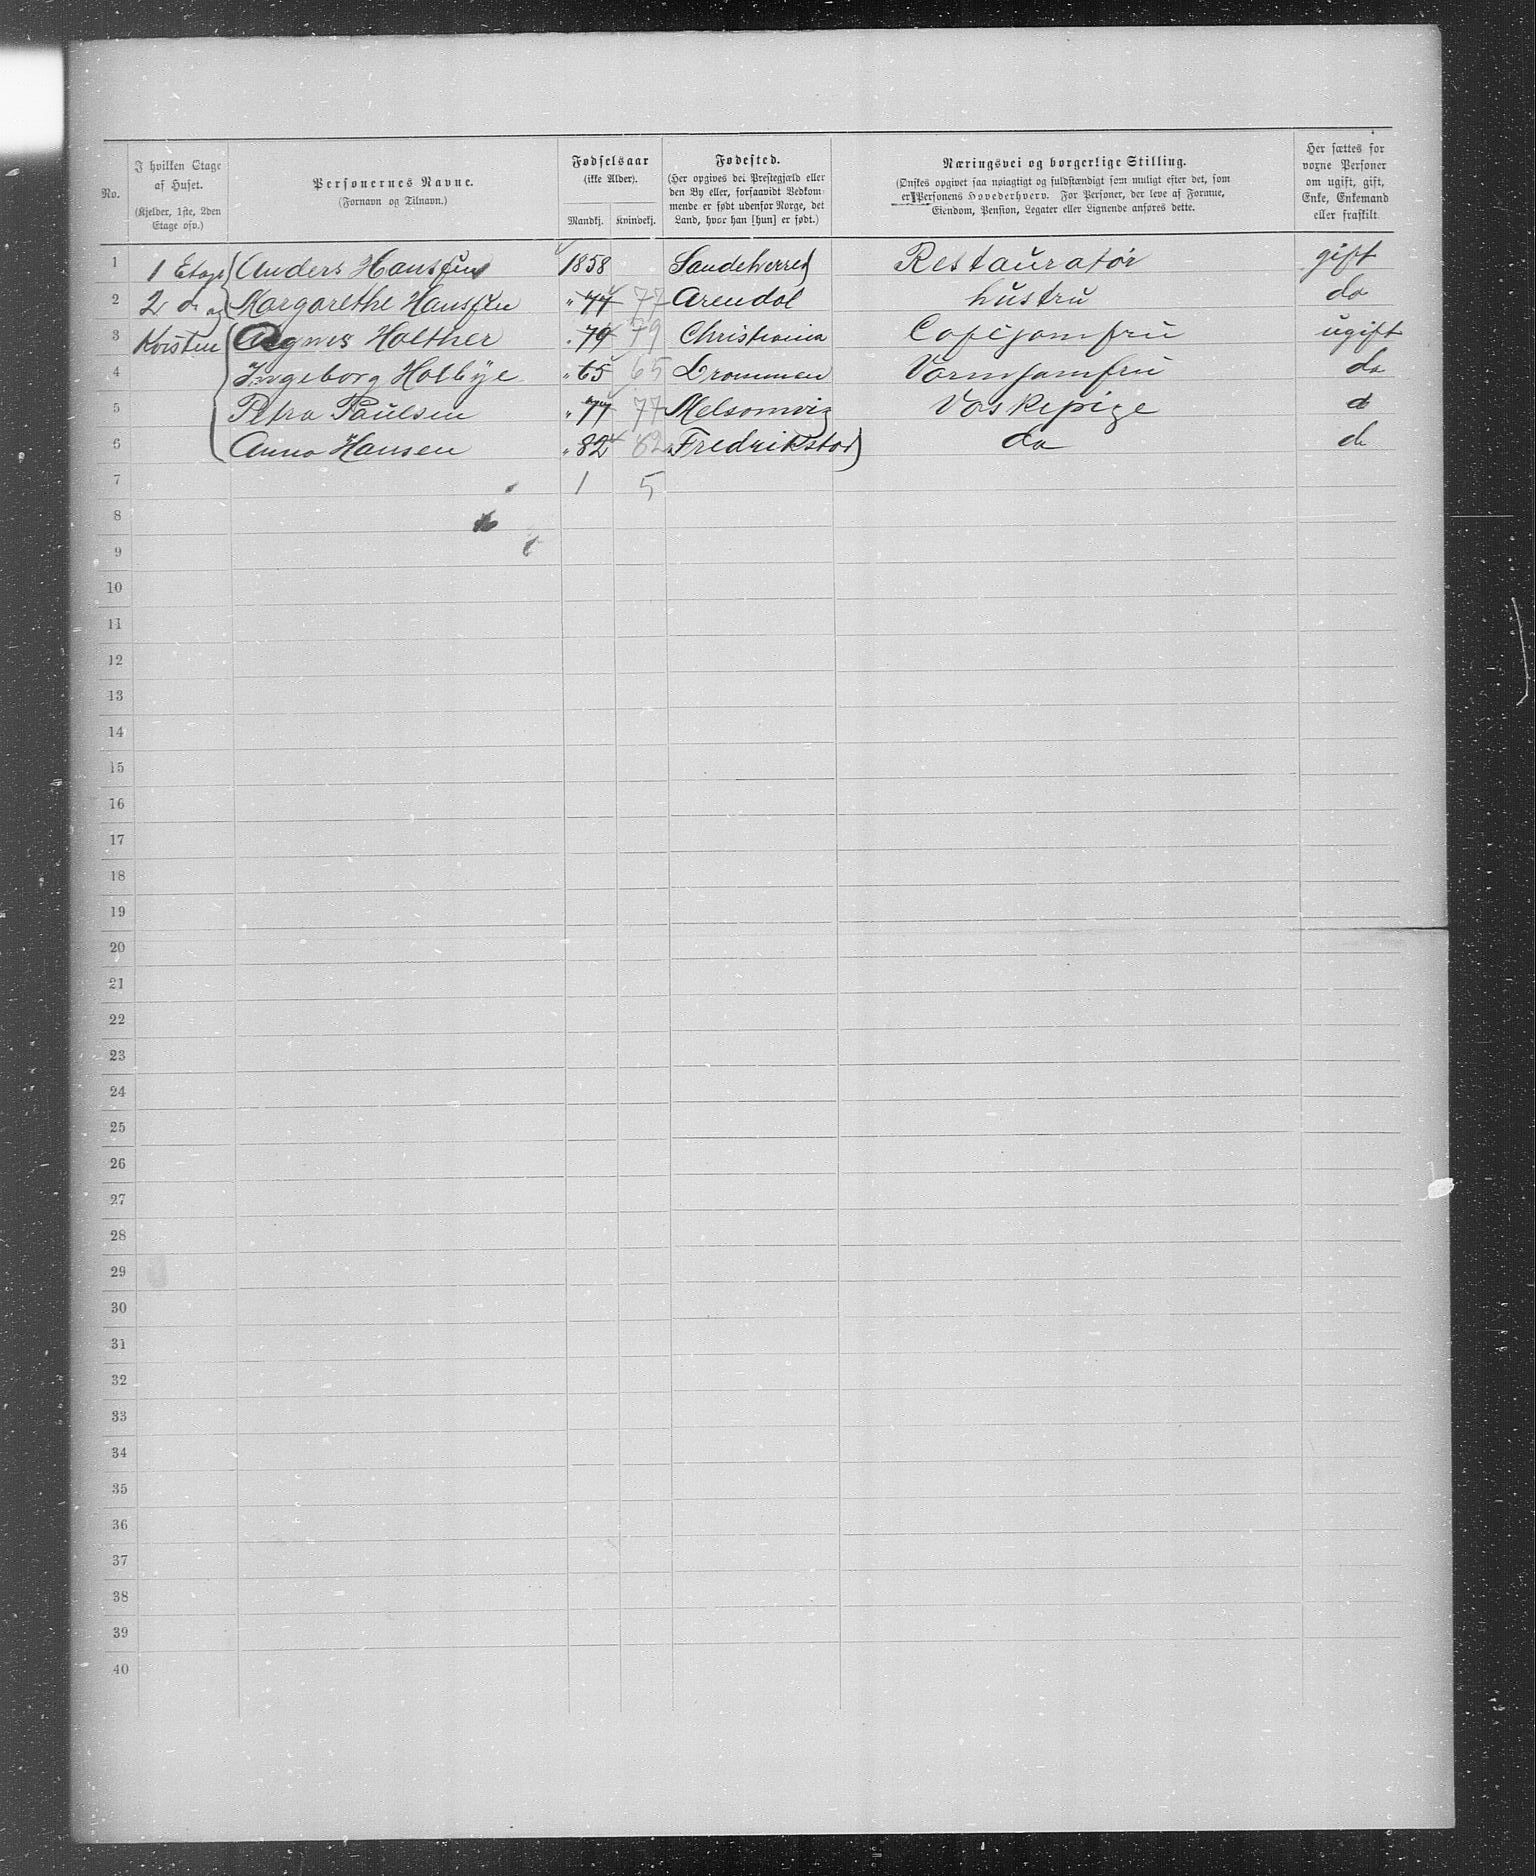 No.
I hvilken Etage af Huset.
(Kjelder, 1ste, 2den Etage osv.)
Personernes Navne.
(Fornavn og Tilnavn.)
Fødselsaar
(ikke Alder).
Mandkj. Kvindekj.
Fødested.
(Her opgives det Prestegjæld eller
den By eller, forsaavidt Vedkom-
mende er født udenfor Norge, det
Land, hvor han [hun] er født.)
Næringsvei og borgerlige Stilling.
(Ønskes opgivet saa nøiagtigt og fuldstændigt som muligt efter det, som
er Personens Hovederhverv. For Personer, der leve af Formue,
Eiendom, Pension, Legater eller Lignende anføres dette.
Her sættes for
voxne Personer
om ugift, gift,
Enke, Enkemand
eller fraskilt
1 1 Etage Anders Hanssen 1858 Sandeherred Restauratør gift
2 2 do og Margarethe Hanssen " 77 77 Arendal hustru do
3 Kvisten Agnes Holther " 79 79 Christiania Cafejomfru ugift
4 Ingeborg Holbye " 65 65 Drammen Varmjomfru do
5 Petra Paulsen " 77 77 Melsomvig Vaskepige d
6 Anna Hansen " 82 82 Fredrikstad do do
7 1 5
8
9
10
11
12
13
14
15
16
17
18
19
20
21
22
23
24
25
26
27
28
29
30
31
32
33
34
35
36
37
38
39
40